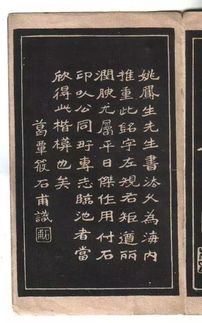 姚鳳生先生書法久為海內
推重此銘字左規右矩遒麗
潤腴尤屬平日傑作用付石
印以公同好專志臨池者當
欣得此楷也矣
葛覃筱石甫識